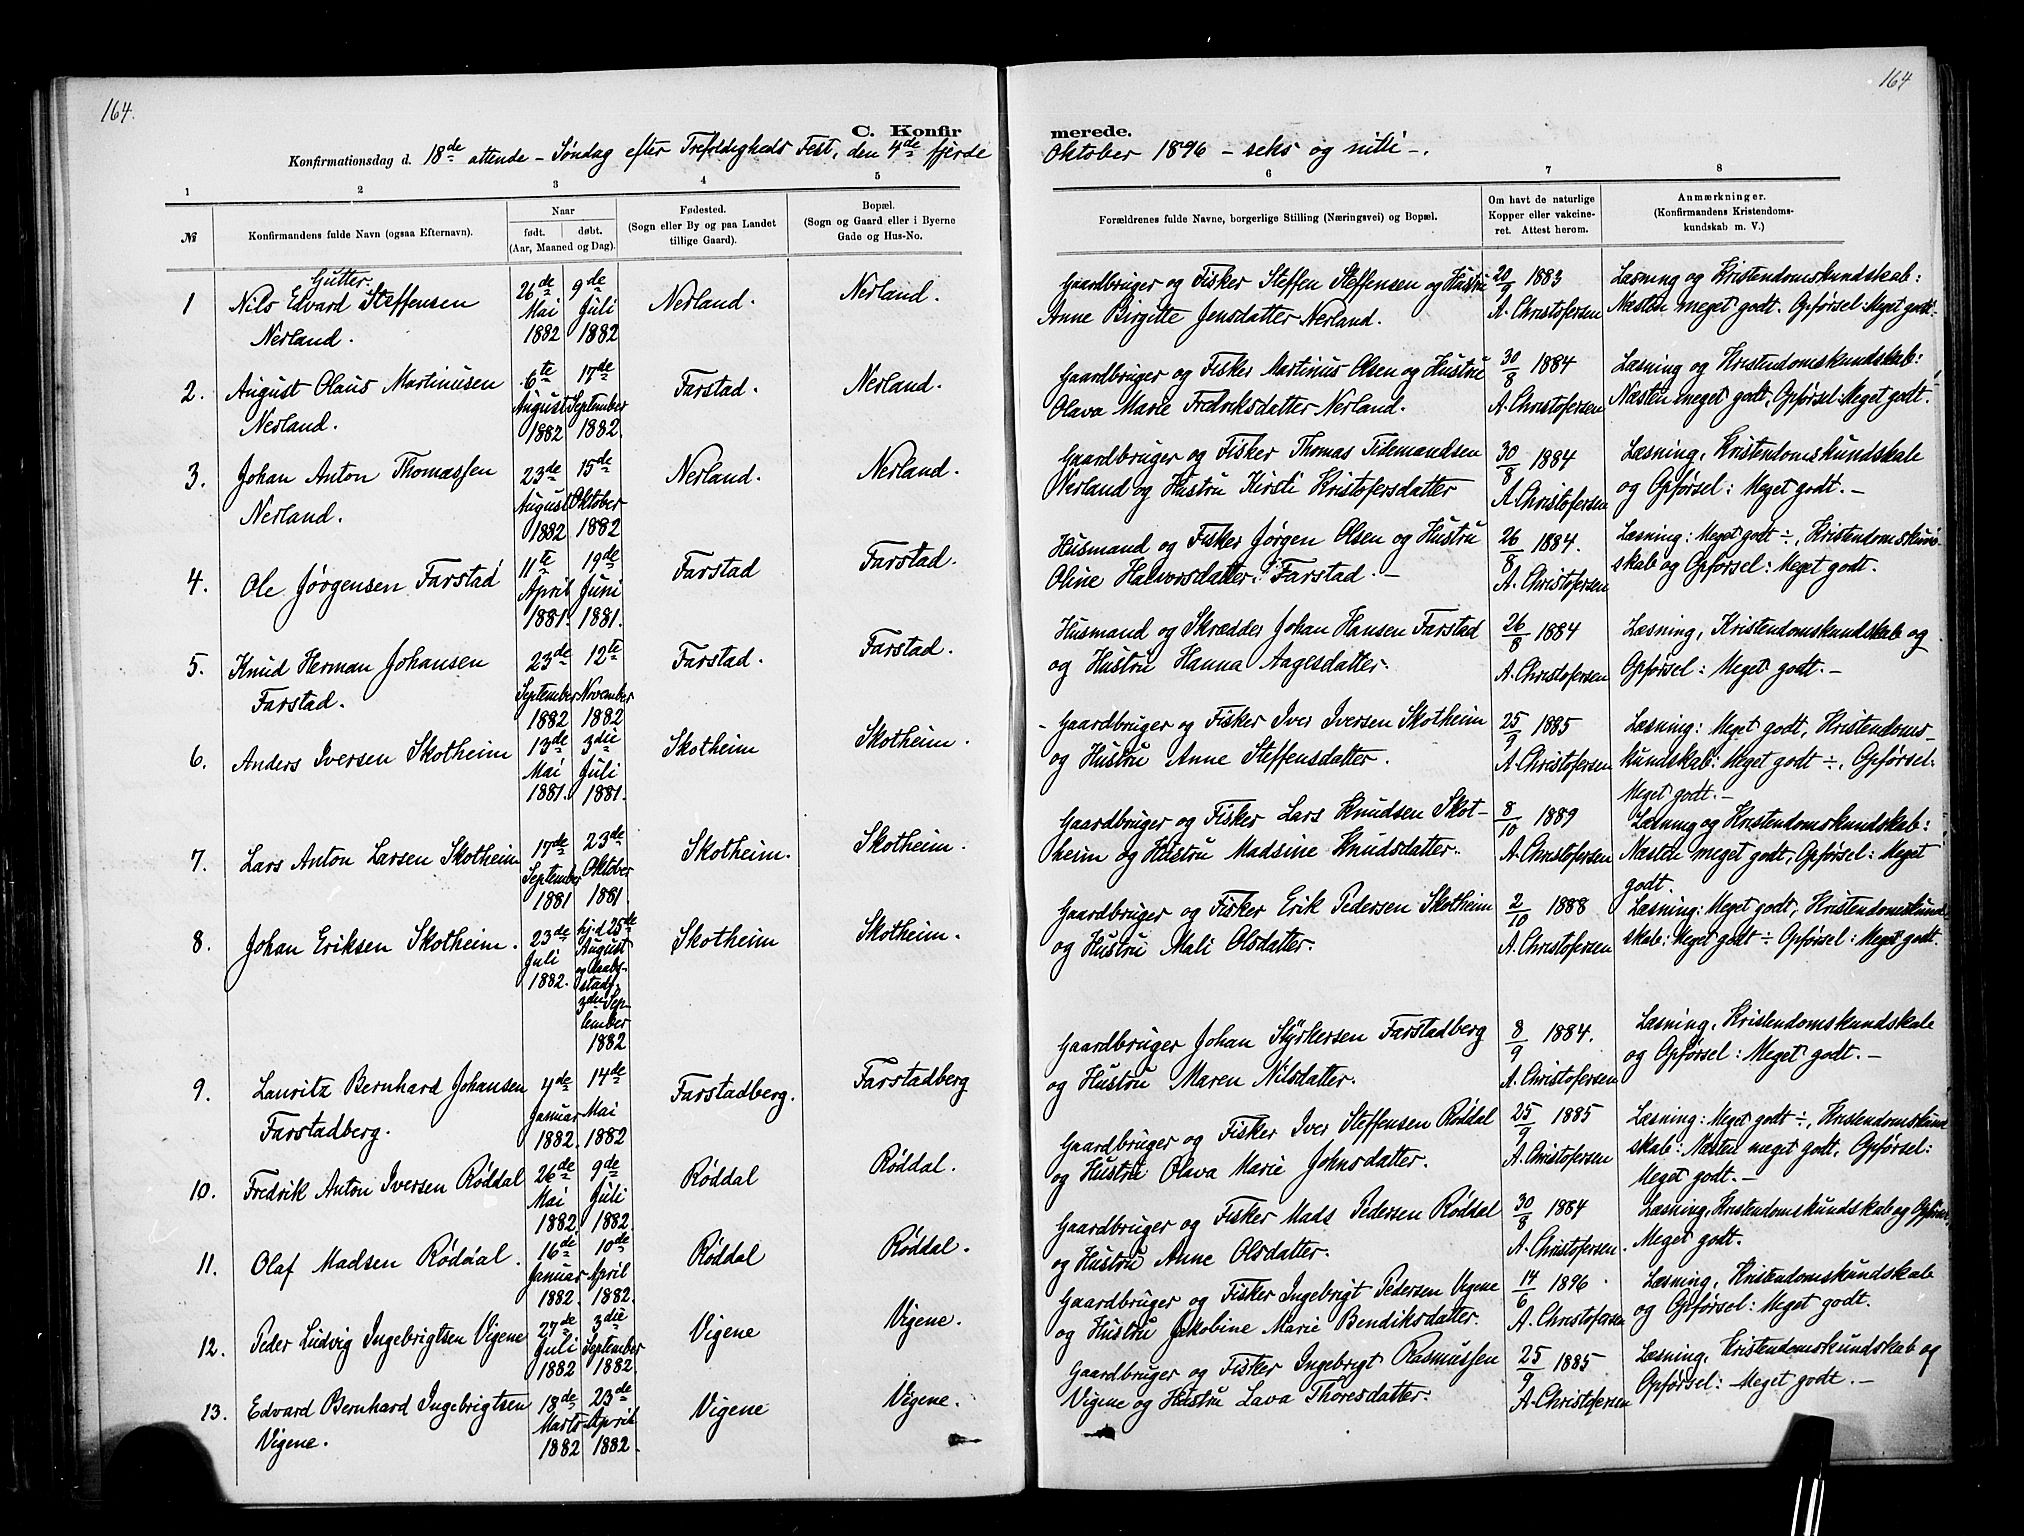 164.
164
C. Konfir
merede.
Konfirmationsdag d. 18de attende – Søndag efter Trefoldigheds Fest, den 4de fjerde
Oktober 1896 – seks og nitti –.
1 2 3 4 5
6 7 8
№
Konfirmandens fulde Navn (ogsaa Efternavn).
Naar
født. døbt.
(Aar, Maaned og Dag).
Fødested.
(Sogn eller By og paa Landet
tillige Gaard).
Bopæl.
(Sogn og Gaard eller i Byerne
Gade og Hus-No.
Forældrenes fulde Navne, borgerlige Stilling (Næringsvei) og Bopæl.
Om havt de naturlige
Kopper eller vakcine-
ret. Attest herom.
Anmærkninger.
(Konfirmandens Kristendoms-
kundskab m. V.)
Gutter.
1 Nils Edvard Steffensen
Nerland.
26de Mai 1882
9de Juli 1882
Nerland.
Nerland.
Gaardbruger og Fisker Steffen Steffensen og Hustru
Anne Birgitte Jensdatter Nerland.
20/9 1883
A. Christofersen
Læsning og Kristendomskundskab:
Næsten meget godt. Opførsel: Meget godt.
2. August Olaus Martinusen
Nerland.
6te August 1882
17de September 1882.
Farstad.
Nerland.
Gaardbruger og Fisker Martinus Olsen og Hustru
Olava Marie Fredriksdatter Nerland.
30/8 1884
A. Christofersen
Læsning og Kristendomskundskab:
Næsten meget godt, Opførsel: Meget godt.
3. Johan Anton Thomassen
Nerland.
23de August 1882
15de Oktober 1882
Nerland.
Nerland.
Gaardbruger og Fisker Thomas Tidemandsen
Nerland og Hustru Kirsti Kristofersdatter
30/8 1884
A. Christofersen
Læsning, Kristendomskundskab
og Opførsel: Meget godt. –
4. Ole Jørgensen Farstad
11te April 1881.
19de Juni 1881.
Farstad
Farstad.
Husmand og Fisker Jørgen Olsen og Hustru
Oline Halvorsdatter Farstad. –
26/8 1884.
A. Christofersen
Læsning: Meget godt ÷, Kristendomskund-
skab og Opførsel: Meget godt.
5. Knud Herman Johansen
Farstad.
23de September 1882
12te November 1882
Farstad.
Farstad.
Husmand og Skrædder Johan Hansen Farstad
og Hustru Hanna Aagesdatter.
26/8 1884
A. Christofersen
Læsning, Kristendomskundskab og
Opførsel: Meget godt. –
6. Anders Iversen Skotheim
13de Mai 1881.
3die Juli 1881.
Skotheim
Skotheim.
Gaardbruger og Fisker Iver Iversen Skotheim
og Hustru Anne Steffensdatter.
25/9 1885
A. Christofersen
Læsning: Meget godt, Kristendoms-
kundskab: Meget godt ÷, Opførsel:
Meget godt. –
7. Lars Anton Larsen Skotheim
17de September 1881
23de Oktober 1881.
Skotheim.
Skotheim.
Gaardbruger og Fisker Lars Knudsen Skot-
heim og Hustru Madsine Knudsdatter.
8/10 1889
A. Christofersen
Læsning og Kristendomskundskab:
Næsten meget godt, Opførsel: Meget
godt.
8. Johan Eriksen Skotheim.
23de Juli 1882.
hj. d. 25de
August
og daabs-
stadf.
3die Sep-
tember
1882
Skotheim
Skotheim.
Gaardbruger og Fisker Erik Pedersen Skotheim
og Hustru Mali Olsdatter.
2/10 1888
A. Christofersen
Læsning: Meget godt, Kristendomskund-
skab: Meget godt ÷ Opførsel: Meget godt.
9. Lauritz Bernhard Johansen
Farstadberg.
4de Januar 1882.
14de Mai 1882
Farstadberg.
Farstadberg
Gaardbruger Johan Styrkersen Farstadberg
og Hustru Maren Nilsdatter.
8/9 1884.
A. Christofersen
Læsning, Kristendomskundskab
og Opførsel: Meget godt. –
10. Fredrik Anton Iversen Røddal
26de Mai 1882
9de Juli 1882.
Røddal
Røddal.
Gaardbruger og Fisker Iver Steffensen Røddal
og Hustru Olava Marie Johnsdatter.
25/9 1885
A. Christofersen
Læsning: Meget godt ÷, Kristendomskund
skab: Næsten meget godt, Opførsel:
Meget godt. –
11. Olaf Madsen Røddal.
16de Januar 1882.
10de April 1882.
Røddal
Røddal.
Gaardbruger og Fisker Mads Pedersen Røddal
og Hustru Anne Olsdatter.
30/8 1884
A. Christofersen.
Læsning, Kristendomskundskab og Opførsel
Meget godt.
12. Peder Ludvig Ingebrigtsen Vigene
27de Juli 1882
3die September 1882.
Vigene
Vigene.
Gaardbruger og Fisker Ingebrigt Pedersen Vigene
og Hustru Jakobine Marie Bendiksdatter.
14/6 1896
A. Christofersen
Læsning, Kristendomskundskab
og Opførsel: Meget godt.
13. Edvard Bernhard Ingebrigtsen
Vigene.
18de Marts 1882
23de April 1882.
Vigene
Vigene.
Gaardbruger og Fisker Ingebrigt Rasmussen
Vigene og Hustru Lava Thoresdatter.
25/9 1885
A. Christofersen
Læsning, Kristendomskundskab og
Opførsel: Meget godt. –